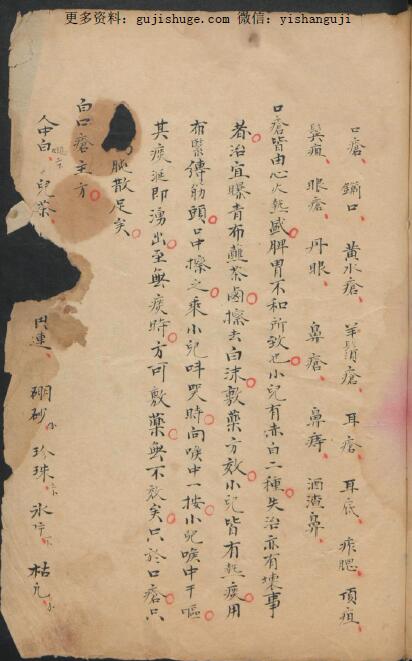 更多资料：gujishuge.com 微信：yishanguji
口瘡、鎖口、黃水瘡、羊鬍瘡、耳瘡、耳底、痄腮、頂疽、
鬓疽、眼瘡、丹眼、鼻瘡、鼻痔、酒渣鼻、
口瘡皆由心火熱盛脾胃不和所致也小兒有赤白二種失治亦有壞事
者治宜㬥青布蘸茶鹵擦去白沫敷藥方效小兒皆有熱痰用
布緊縛筋頭口中擦之乘小兒呌哭時向喉中一按小兒喉中干嘔
其痰涎即湧出至無痰時方可敷藥無不效矣只於口瘡只
脏散足矣
白口瘡主方
人中白、兒茶、連、硼砂、珍珠、氷片、枯凡、